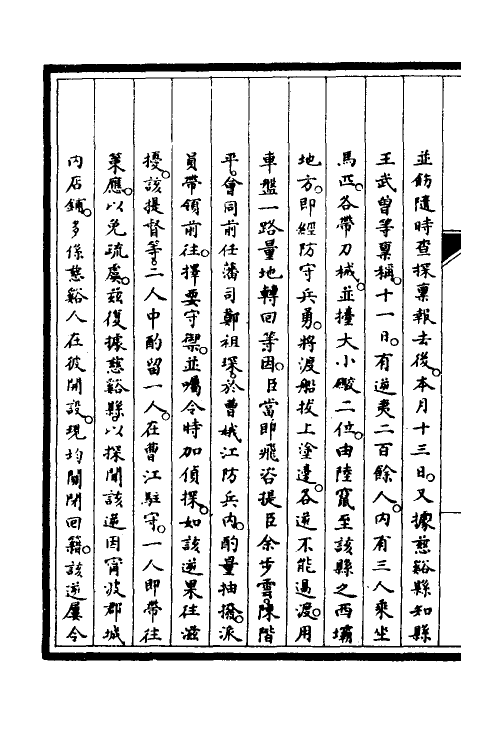 並飭隨時查探稟報去後。本月十三日。又據慈谿縣知縣
王武曾等稟稱。十一日。有逆夷二百餘人。內有三人乘坐
馬匹。各帶刀械。並擡大小礮二位。由陸竄至該縣之西壩
地方。即經防守兵勇。將渡船拔上塗邊。各逆不能過渡。用
車盤一路量地轉回等因。臣當即飛咨提臣余步雲。陳階
平。會同前任藩司鄭祖琛。於曹娥江防兵內。酌量抽撥。派
員帶領前往。擇要守禦。並囑令時加偵探。如該逆果往滋
擾。該提督等二人中酌留一人。在曹江駐守。一人即帶往
策應。以免疏虞。茲復據慈谿縣以探聞該逆因甯波郡城
內店鋪。多係慈谿人在彼開設。現均關閉回籍。該逆屢令